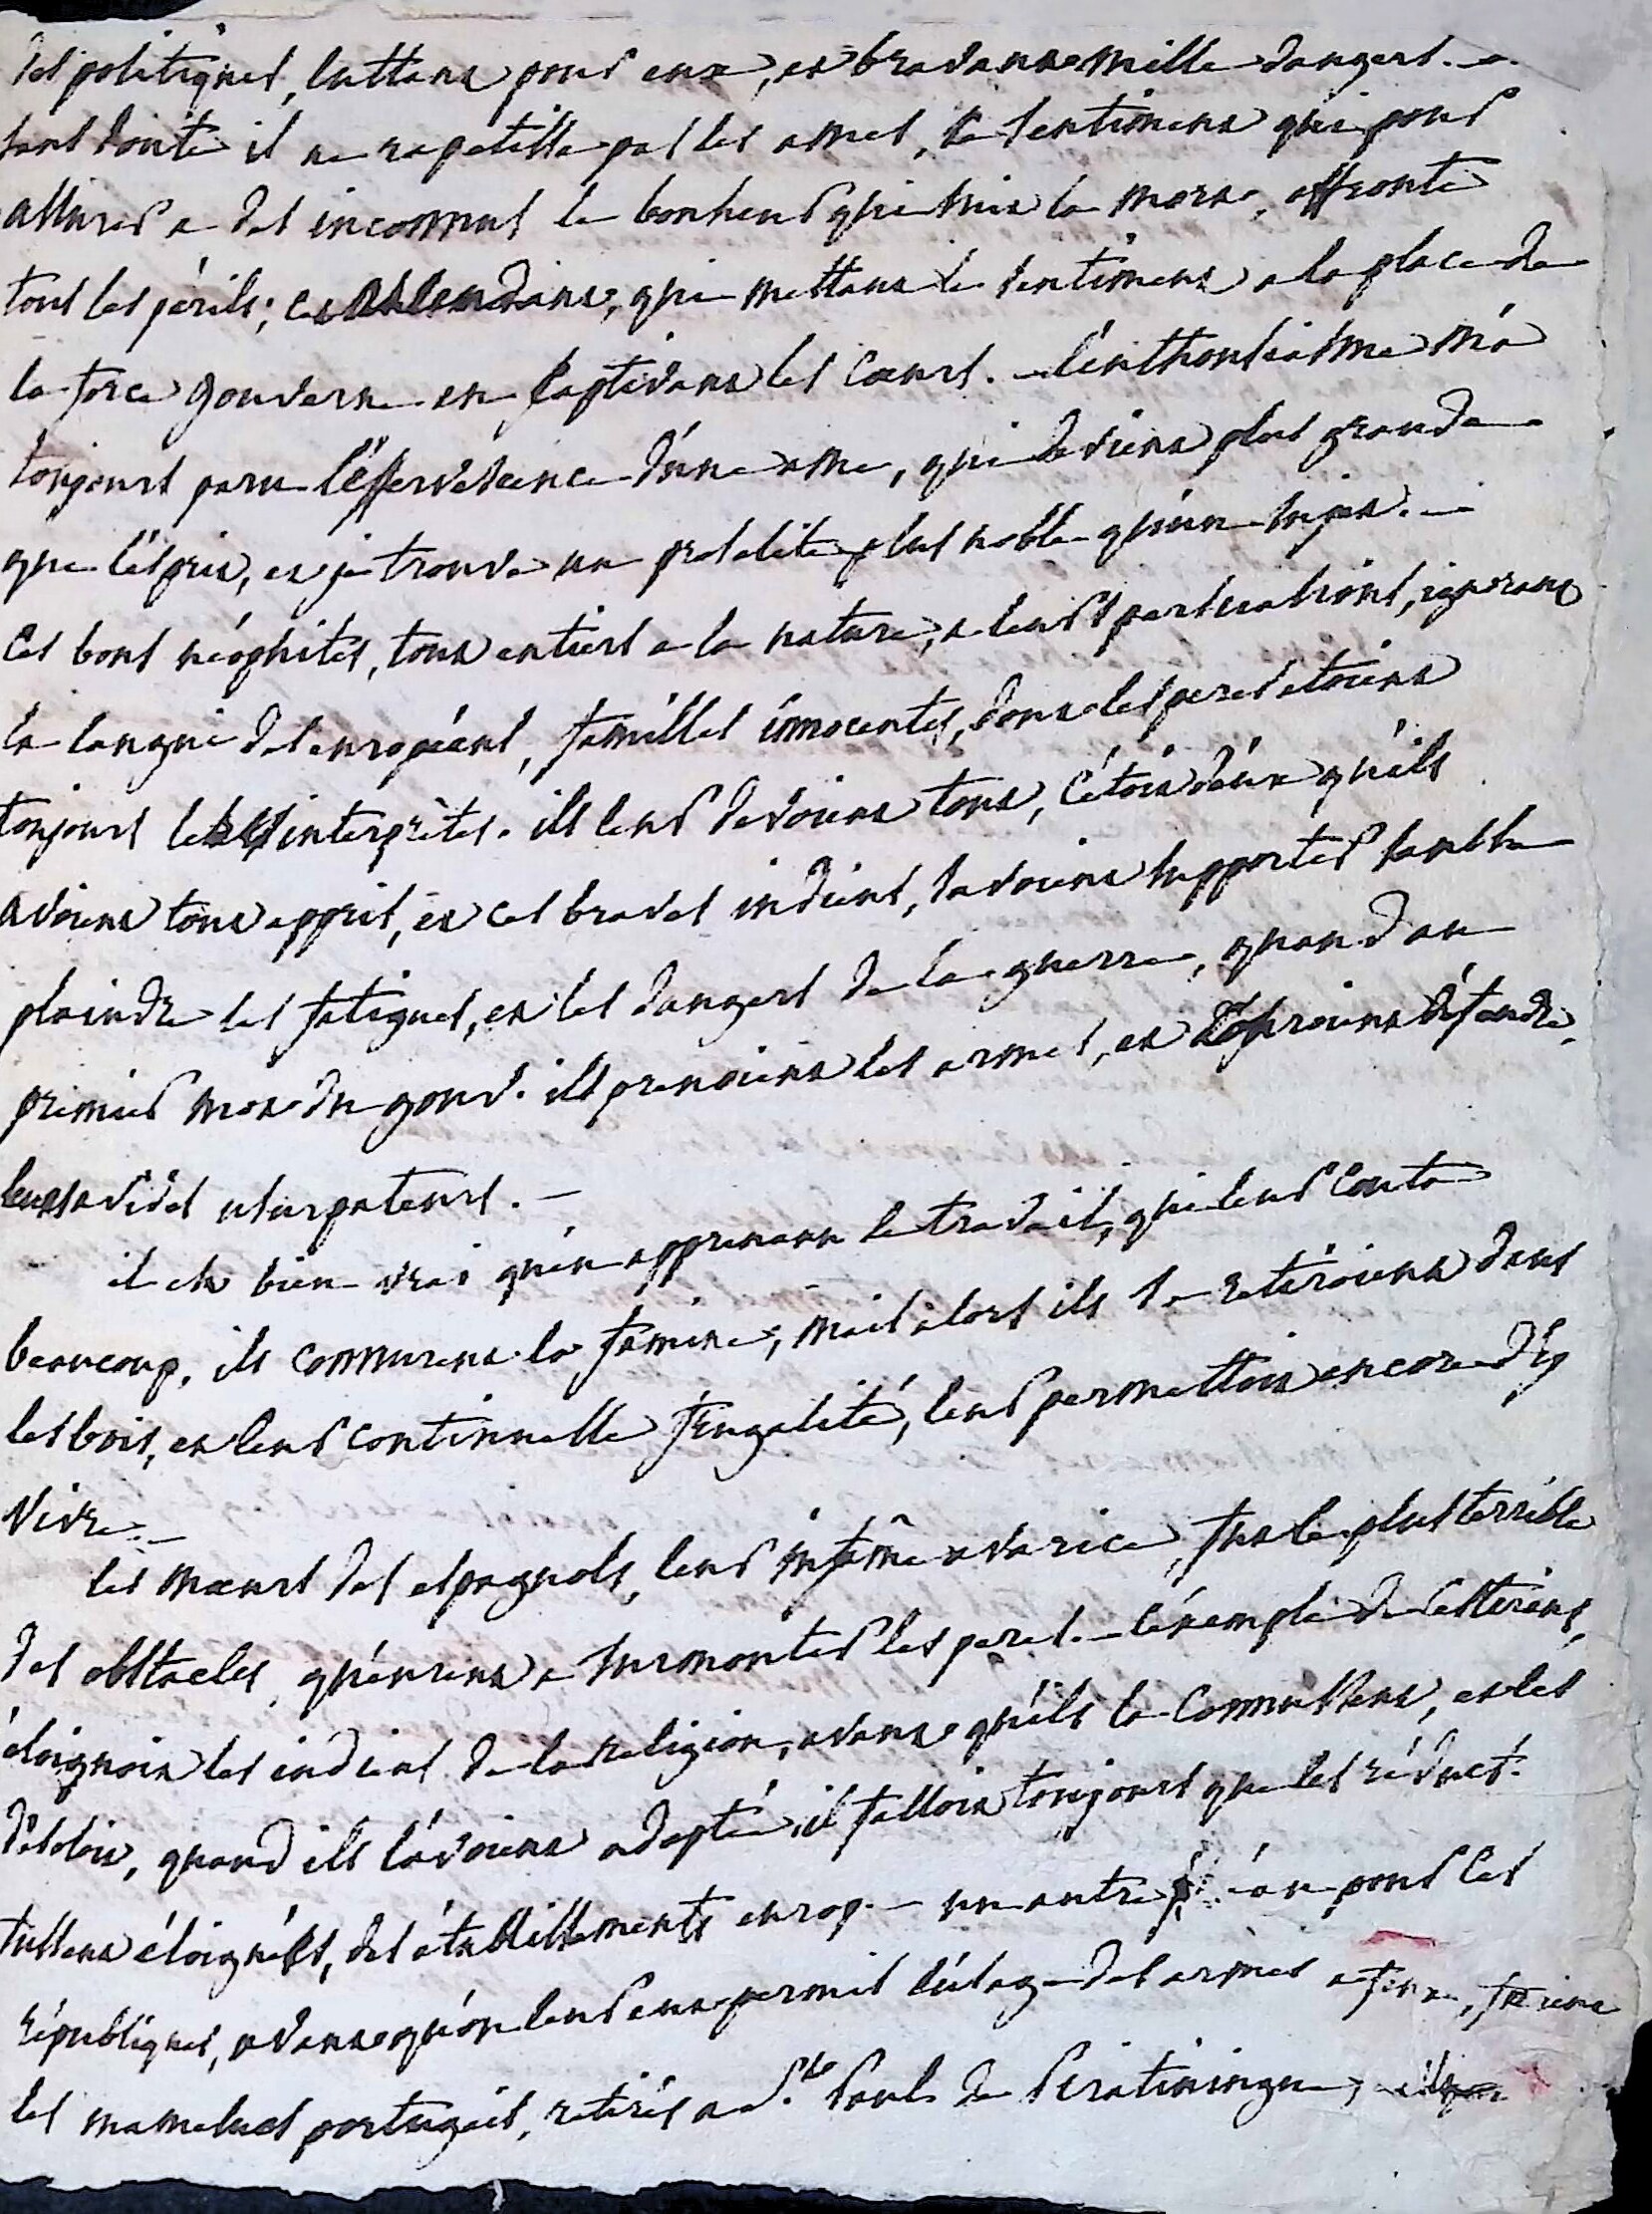 des politiques, luttant pour eux, et bravant mille dangers. —
sans doute il ne rapetisse pas les ames, le sentiment qui pour
assurer a des inconnus le bonheur qui suit la mort, affronte
tous les périls; et l'ascendant, qui mettant le sentiment a la place de
la force gouverne en captivant les coeurs. — l'enthousiasme m'a
toujours paru l'effervescence d'une ame, qui devient plus grande
que l'esprit, et je trouve un proselite plus noble qu'un sujet. —
Ces bons néophites, tout entiers a la nature, a leurs persuasions, ignorant
la langue des européans, familles innocentes, dont les peres etoient
toujours les interprètes. ils leur devoient tout, c'étoit d'eux qu'ils
avoient tout appris, et ces braves indiens, savoient supporter sans se
plaindre les fatigues, et les dangers de la guerre, quand au
premier mot du gouv. ils prenoient les armes, et couroient défendre,
leurs avides usurpateurs. —
il est bien vrai qu'en apprenant le travail, qui leur couta
beaucoup, ils connurent la famine, mais alors ils se retiroient dans
les bois, et leur continuelle frugalité, leur permettoit encore d'y
vivre. —
les moeurs des espagnols, leur infâme avarice, fut le plus terrible
des obstacles, qu'eurent a surmonter les peres. — l'éxemple de ces chretiens,
éloignoit les indiens de la religion, avant qu'ils la connussent, et les
désoloit, quand ils l'avoient adoptée, il falloit toujours que les réduct.
fussent éloignées, des établissements europ. — un autre fléau pour les
républiques, avant qu'on leur eut permis l'usage des armes a feu, furent
les mamelus portugais, retirés a St. Paul de Piratiningue,